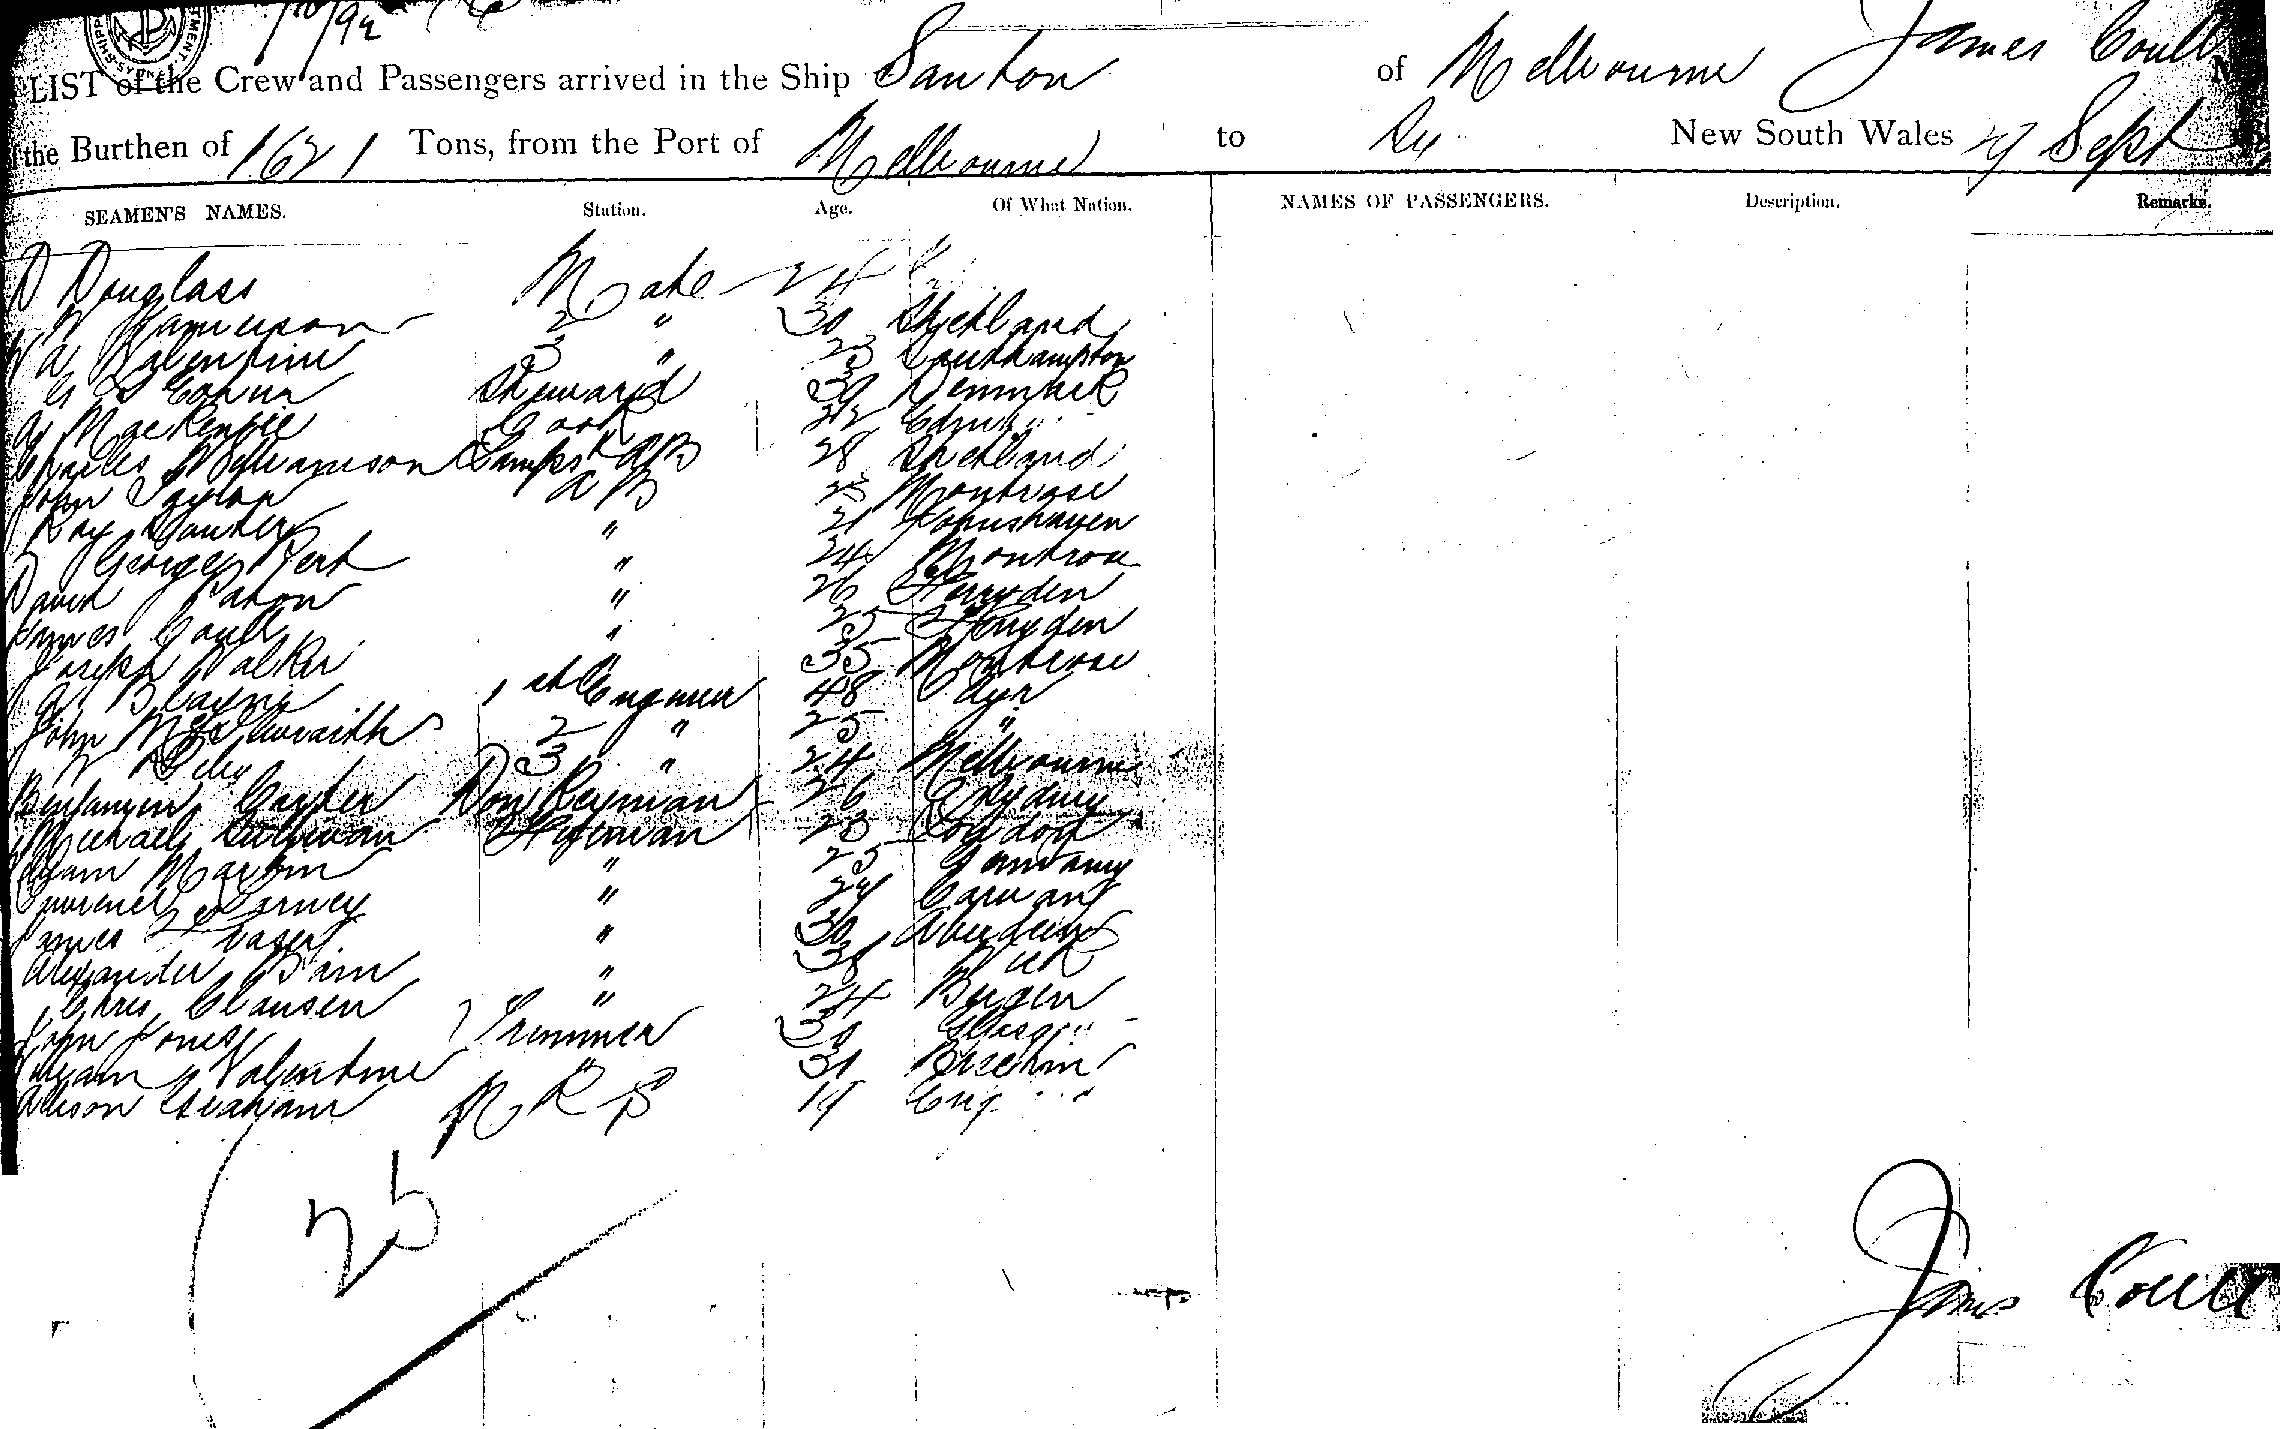 /92
LIST of the Crew and Passengers arrived in the Ship Santon of Melbourne James Coull
the Burthen of 1621 Tons, from the Port of Melbourne to Sy New South Wales 27 Sept
SEAMEN'S NAMES. Station. Age. Of What Nation. NAMES OF PASSENGERS. Description. Remarks.
D Douglass Mate 24
W Jamieson 2 " 30 Shetland
Valentine 3 " 23 Southampton
Steward 30 Denmark
MacKenzie Cook 22
Charles Williamson Lampst AB 28 Shetland
John Taylor AB 25 Montrose
Roy 21 Johnshaven
George Pert " 24 Montrose
David Paton " 26 Ferryden
James Coull " 25 Ferryden
Joseph Walker " 35 Montrose
1st Engineer 48 Ayr
John McIlwraith 2 " 25 "
W 3 " 24 Melbourne
Benjamin Carter Donkeyman 26 Sydney
Michael Sullivan Fireman 23 London
William Martin " 25
Lawrence Kearney "
James Fraser " 30 Aberdeen
Alexander Bain " 38 Wick
Chris Clausen " 24 Bergen
John Jones Trimmer 30 Glasg "
William Valentine " 31 Brechin
Graham 19
25
James Coull